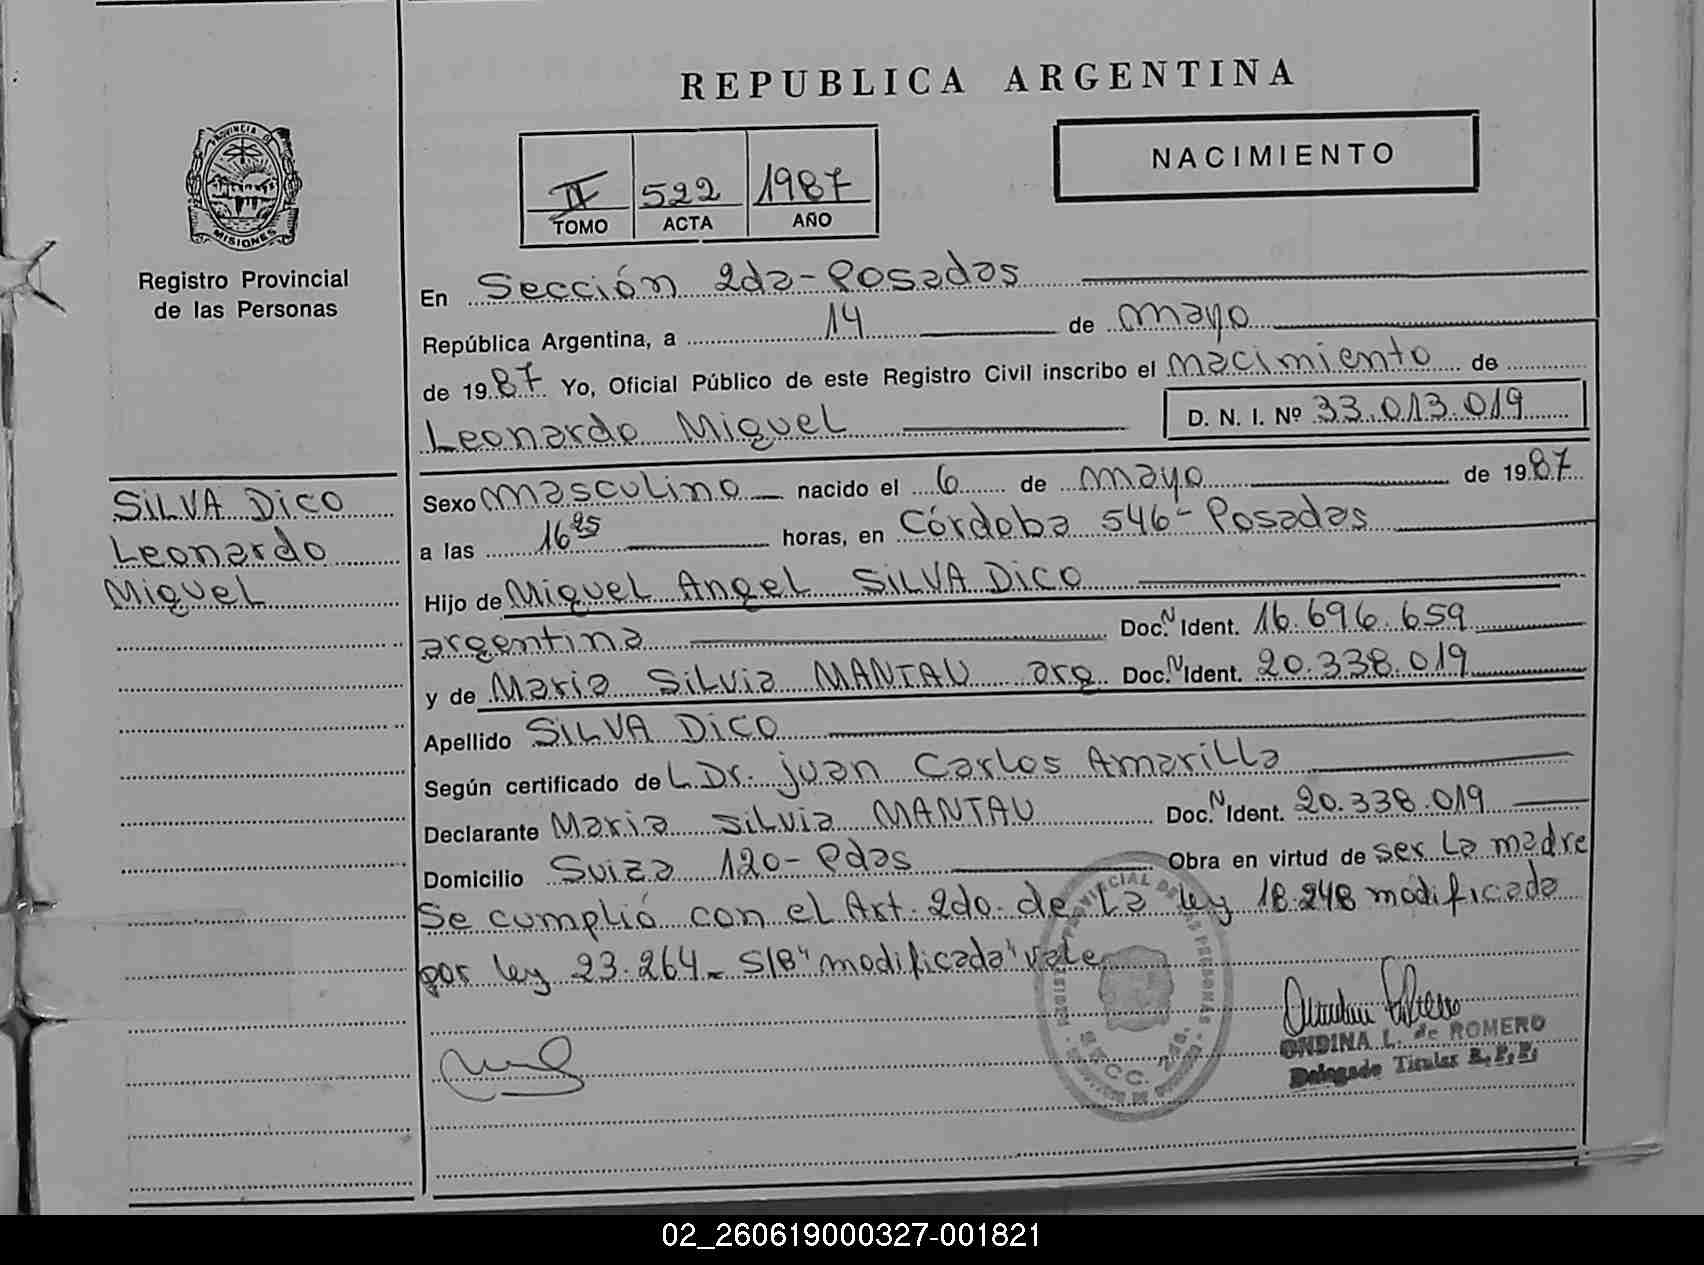 REPUBLICA ARGENTINA
PROVINCIA DE
MISIONES
Registro Provincial
de las Personas
II 522 1987
TOMO ACTA AÑO
NACIMIENTO
En Sección 2da-Posadas
República Argentina, a 14 de mayo
de 1987 Yo, Oficial Público de este Registro Civil inscribo el nacimiento de
Leonardo Miguel D. N. I. Nº 33.013.019
SILVA DICO
Leonardo
Miguel
Sexo masculino nacido el 6 de mayo de 1987
a las 16 25 horas, en Córdoba 546-Posadas
Hijo de Miguel Angel SILVA DICO
argentina Doc. N Ident. 16.696.659
y de Maria Silvia MANTAU arg Doc. N Ident. 20.338.019
Apellido SILVA DICO
Según certificado de L.Dr. juan Carlos Amarilla
Declarante Maria Silvia MANTAU Doc. N Ident. 20.338.019
Domicilio Suiza 120-Pdas Obra en virtud de ser la madre
Se cumplió con el Art. 2do. de la ley 18.248 modificada
por ley 23.264- S/B "modificada" vale
ONDINA L. de ROMERO
Delegado Titular R. P. P.
SECC. 2da.
02_260619000327-001821